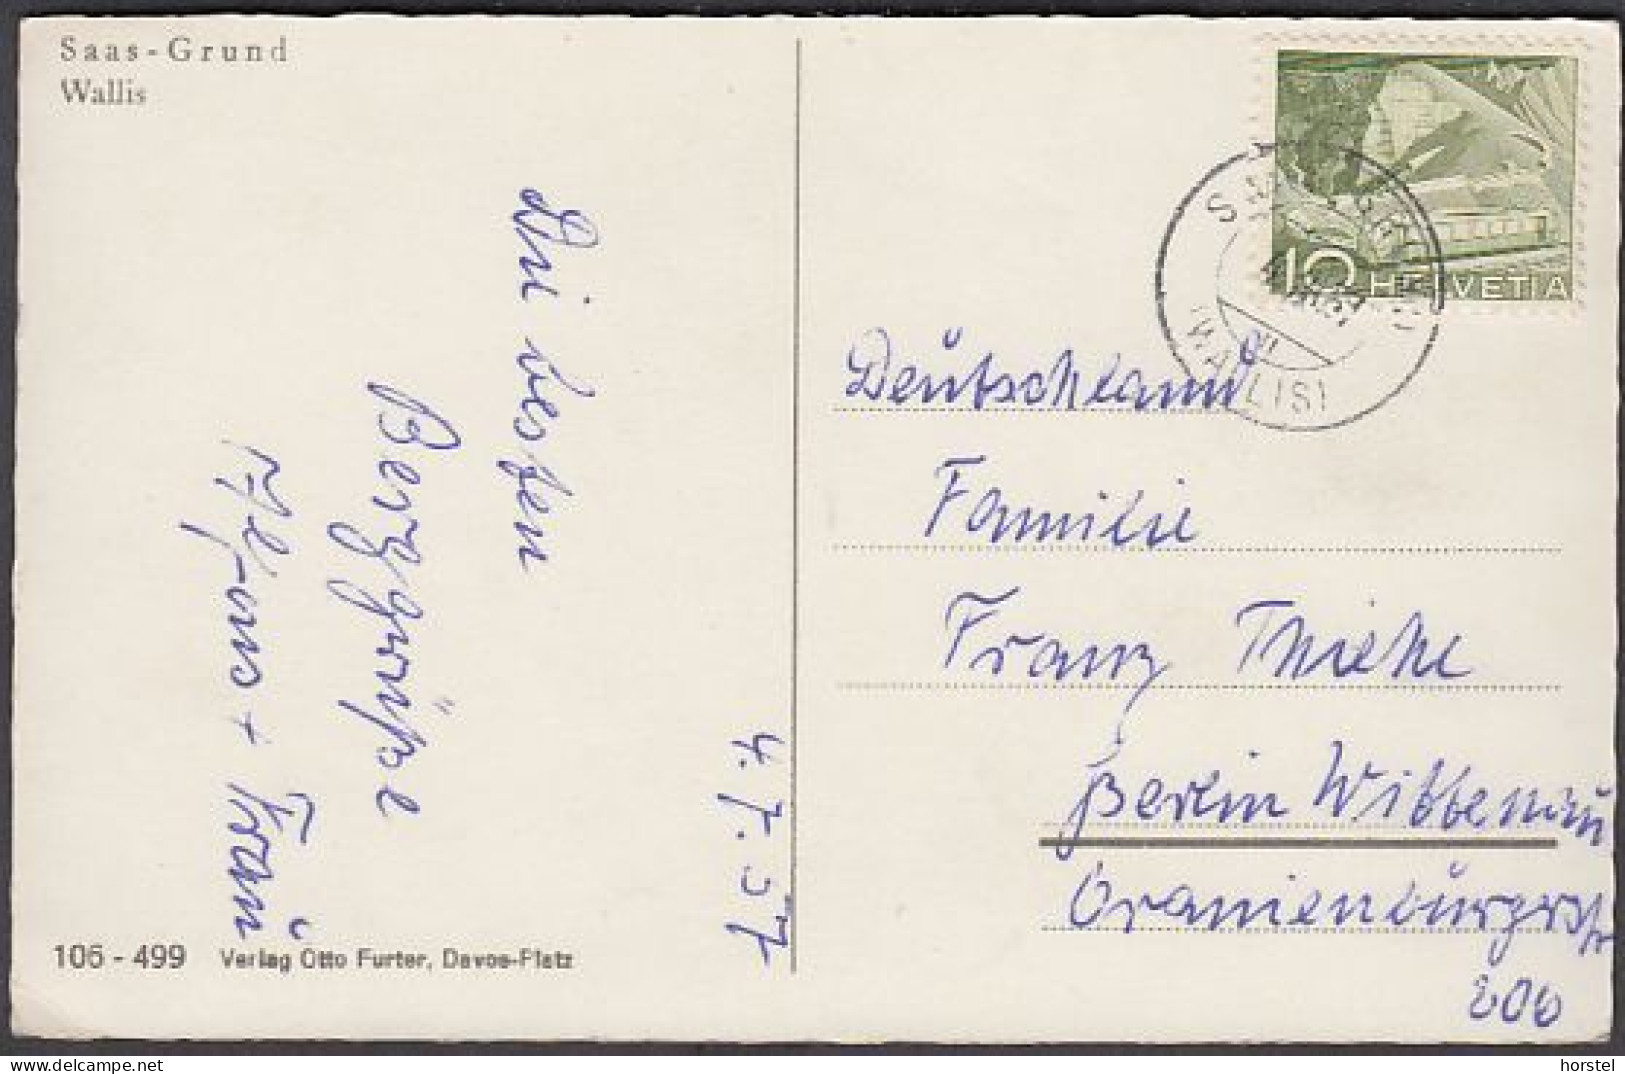 Saas-Grund
Wallis
Die besten
Berggrüße
Alfons + Frau
4.7.57
106 - 499 Verlag Otto Furter, Davos-Platz
10 HELVETIA
(WALLIS)
VI
Deutschland
Familie
Franz Thiehe
Berlin Wittenau
Oranienburgerstr
200
horstel